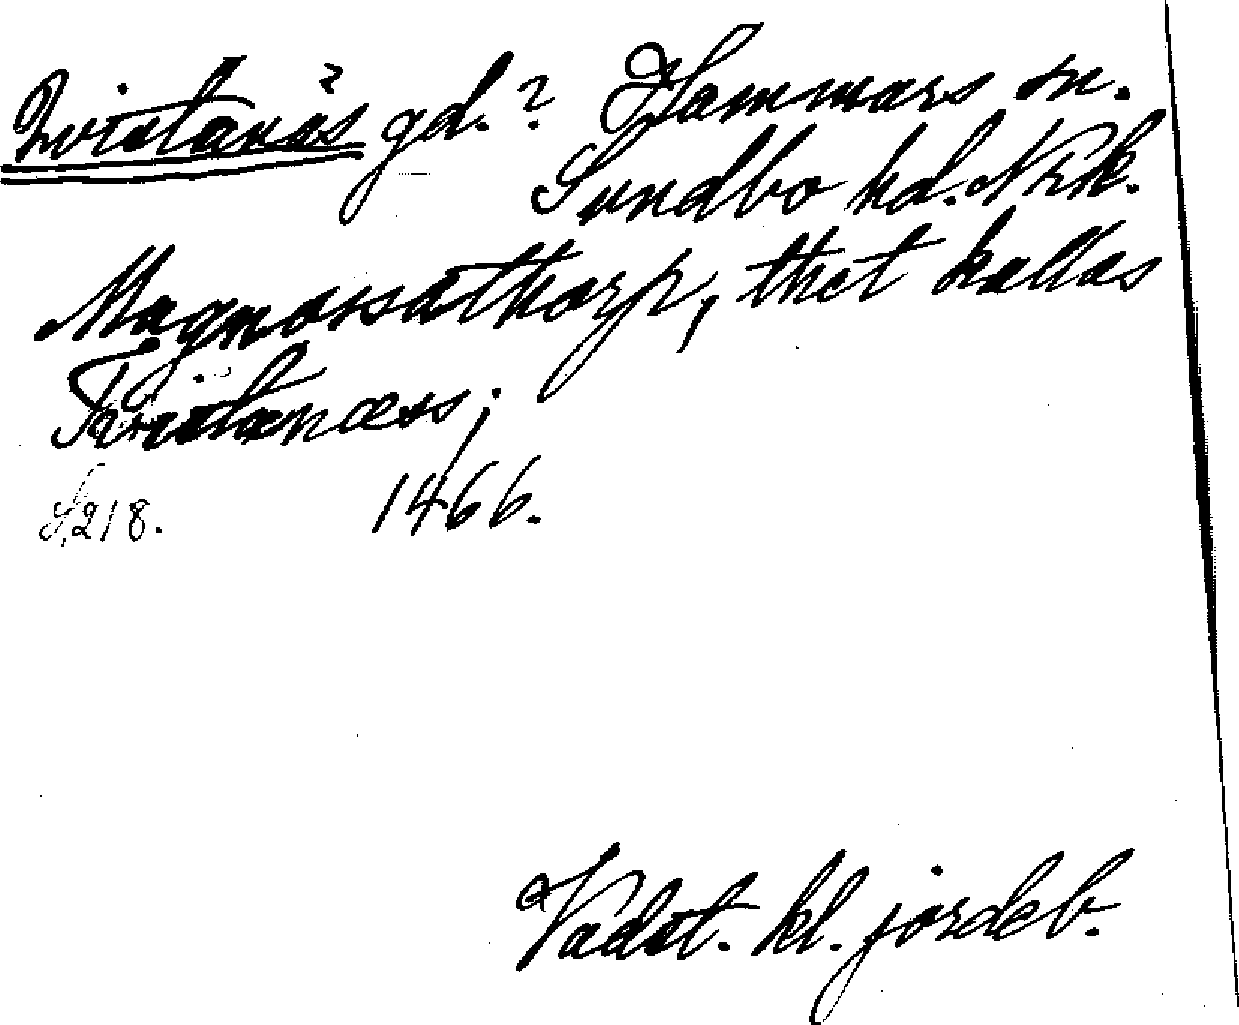 Tvistanäs ? gd. ? Hammars sn.
Sundbo hd. Nrk.
Magnossathorp, thet kallas
Tw̄istanæss;
S. 218. 1466.
Vadst. kl. jordeb.